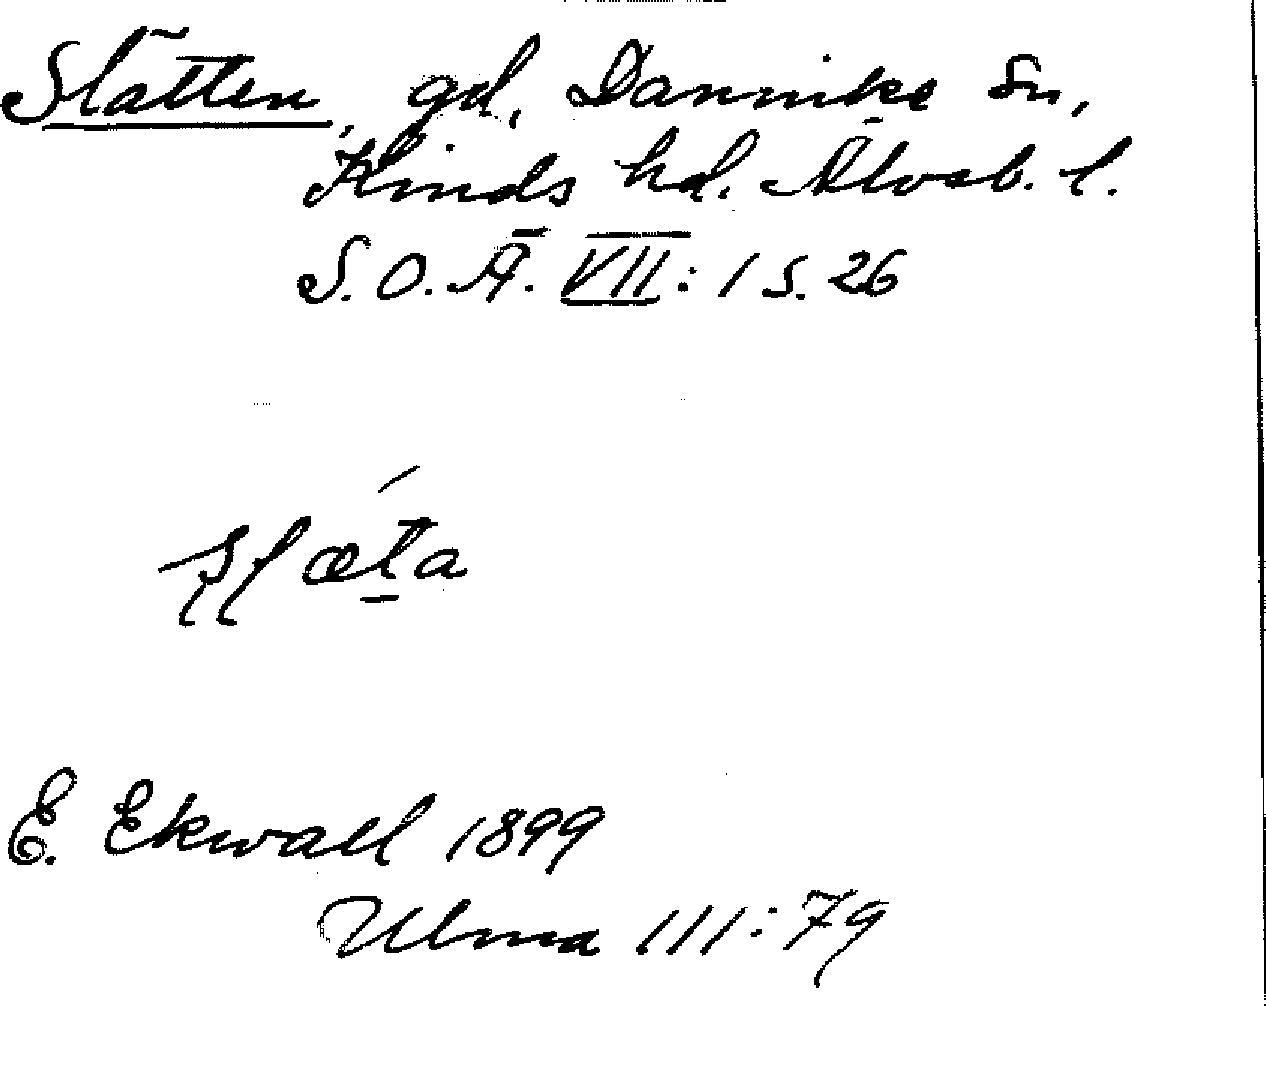 Slätten, gd, Dannike sn,
Kinds hd. Älvsb. l.
S. O. Ä. VII: 1 s. 26
slæta
E. Ekwall 1899
Ulma 111:79